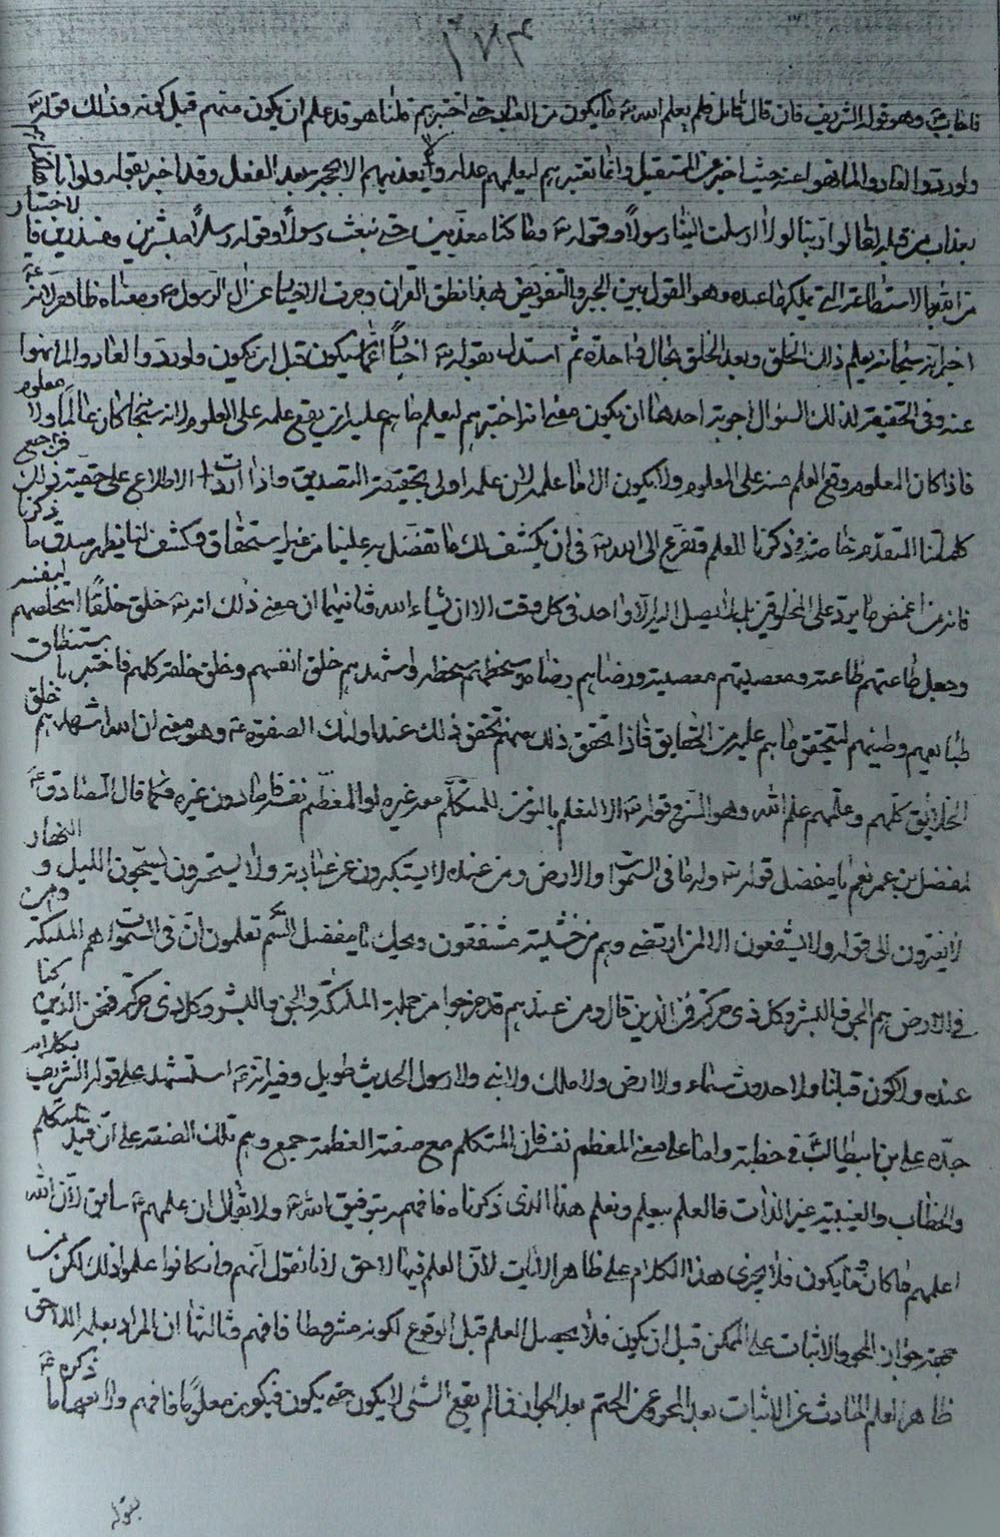 فاجاب ع وهو قوله الشريف فان قال قائل فلم يعلم الله ما يكون من العباد حتى اختبرهم قلنا هو قد علم ان يكون منهم قبل كونه وذلك قوله
ولو ردوا لعادوا لما نهوا عنه حيث اخبر عن المستقبل وانما يختبرهم ليعلمهم عدله ولا يعذبهم الا بحجة بعد الفعل وقد اخبر بقوله ولو انا اهلكناهم
بعذاب من قبله لقالوا ربنا لولا ارسلت الينا رسولاً وقوله وما كنا معذبين حتى نبعث رسولاً وقوله رسلاً مبشرين ومنذرين فالاختبار
من الله بالاستطاعة التي ملكها عبده وهو القول بين الجبر والتفويض بهذا نطق القران وجرت الاخبار عن ال الرسول ومعناه ظاهر لانه
اخبر انه سبحانه يعلم ذلك الخلق وبعد الخلق بحال واحدة ثم استدل بقوله اخباراً عما يكون قبل ان يكون ولو ردوا لعادوا لما نهوا
عنه وفي الحقيقة لذلك السؤال اجوبة احدها ان يكون معنى انه اختبرهم ليعلم ما هم عليه ان يقع علمه على المعلوم لانه سبحانه كان عالماً ولا معلوم
فاذا كان المعلوم وقع العلم منه على المعلوم ولا يكون الا ما علمه لان علمه اولى بحقيقة التصديق واذا اردت الاطلاع على حقيقة ذلك فراجع
كلماتنا المتقدمة خاصة في ذكرنا للعلم وتفرع الى الله في ان يكشف لك ما تفضل به علينا من غير استحقاق وكشف لنا يظهر صدق ما ذكرنا
فانه من اغمض ما يرد على المخلوقين بل لا يصل اليه الا واحد في كل وقت الا ان يشاء الله وثانيها ان معنى ذلك انه خلق خلقاً استخلصهم لنفسه
وجعل طاعتهم طاعته ومعصيتهم معصيته ورضاهم رضاه وسخطهم سخطه واشهدهم خلق انفسهم وخلق خلقه كلهم فاختبر باستنطاق
طبايعهم وطينهم ليتحقق ما هم عليه من الحقايق فاذا تحقق ذلك منهم تحقق ذلك عند اولئك الصفوة وهو معنى ان الله اشهدهم خلق
الخلايق كلهم وعلمهم علم الله وهو السر في قوله الا لنعلم بالنون للمتكلم معه غيره او المعظم نفسه دون غيره كما قال الصادق ع
لمفضل بن عمر نعم يا مفضل قوله وله ما في السموات والارض ومن عنده لا يستكبرون عن عبادته ولا يستحسرون يسبحون الليل والنهار
لا يفترون الى قوله ولا يشفعون الا لمن ارتضى وهم من خشيته مشفقون ويحك يا مفضل الستم تعلمون ان في السموات هم الملائكة ومن
في الارض هم الجن والبشر وكل ذي حركة فمن الذين قال ومن عنده هم قد خرجوا من جملة الملائكة والجن والبشر وكل ذي حركة فنحن الذين كنا
عنده ولا كون قبلنا ولا حدوث سماء ولا ارض ولا ملك ولا نبي ولا رسول الحديث طويل وفيه انه ع استشهد على قوله الشريف بكلام
جده علي بن ابي طالب ع في خطبة واما على معنى المعظم نفسه فان المتكلم مع صفة العظمة جمع وهم تلك الصفة على ان قيد التكلم
والخطاب والغيبة غير الذات فالعلم يعلم ونعلم هذا الذي ذكرناه فافهم بتوفيق الله ولا يقال ان علمهم سابق لان الله
اعلمهم ما كان وما يكون فلا يجري هذا الكلام على ظاهر الايات لان العلم فيها لاحق لانا نقول انهم وان كانوا علموا ذلك لكن من
جهة جواز المحو والاثبات على الممكن قبل ان يكون فلا يحصل العلم قبل الوقوع لكونه مشروطا فافهم وثالثها ان المراد بعلمه اللاحق
ظاهر العلم الحادث عن الاثبات بعد المحو وعن الحتم بعد الجواز فما لم يقع الشئ لا يكون حتى يكون فيكون معلوما فافهم ورابعها ما ذكره ع
بقوله